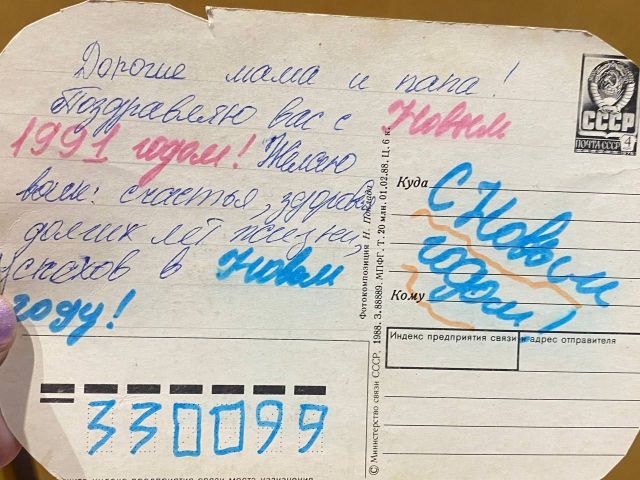 Дорогие мама и папа!
Поздравляю вас с Новым
1991 годом! Желаю
вам: счастья, здоровья
долгих лет жизни,
успехов в Новом
году!
330099
СССР
ПОЧТА СССР 4
Куда
С Новым
годом!
Кому
Индекс предприятия связи и адрес отправителя
© Министерство связи СССР, 1988. З. 88889. МПФГ. Т. 20 млн. 01.02.88. Ц. 6 к.
Фотокомпозиция Н.
индекс предприятия связи места назначения